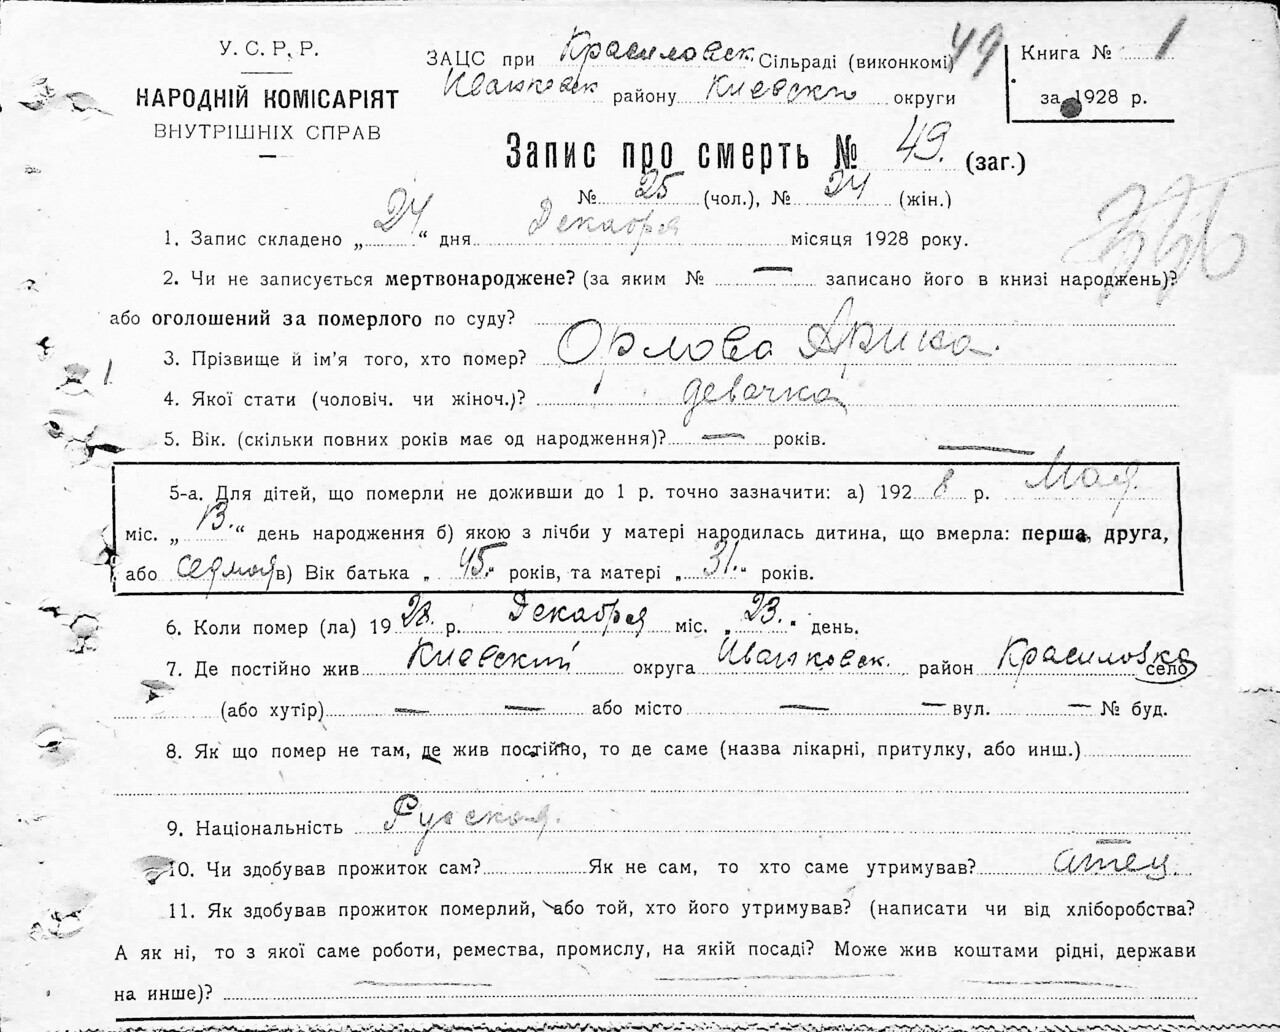 У. С. Р. Р.
НАРОДНІЙ КОМІСАРІЯТ
ВНУТРІШНІХ СПРАВ
ЗАЦС при Красиловск. Сільраді (виконкомі)
49
Иванковск району Киевской округи
Книга № 1
за 1928 р.
Запис про смерть № 49. (заг.)
№ 25 (чол.), № 24 (жін.)
1. Запис складено „ 24 “ дня Декабря місяця 1928 року.
2. Чи не записується мертвонароджене? (за яким № — записано його в книзі народжень)?
або оголошений за померлого по суду?
3. Прізвище й ім'я того, хто помер? Орлова Арина.
1.
4. Якої стати (чоловіч. чи жіноч.)? девочка
5. Вік. (скільки повних років має од народження)? — років. —
5-а. Для дітей, що померли не доживши до 1 р. точно зазначити: а) 192 8 р. Мая
міс. „ 13. “ день народження б) якою з лічби у матері народилась дитина, що вмерла: перша, друга,
або седмая в) Вік батька „ 45. “ років, та матері „ 31. “ років.
6. Коли помер (ла) 19 28. р. Декабря міс. „ 23. “ день.
7. Де постійно жив Киевский округа Иванковск. район Красиловка село
(або хутір) — — або місто — — вул. — № буд.
8. Як що помер не там, де жив постійно, то де саме (назва лікарні, притулку, або инш.)
9. Національність Русская.
10. Чи здобував прожиток сам? Як не сам, то хто саме утримував? отец.
11. Як здобував прожиток померлий, або той, хто його утримував? (написати чи від хліборобства?
А як ні, то з якої саме роботи, ремества, промислу, на якій посаді? Може жив коштами рідні, держави
на инше)? — — —